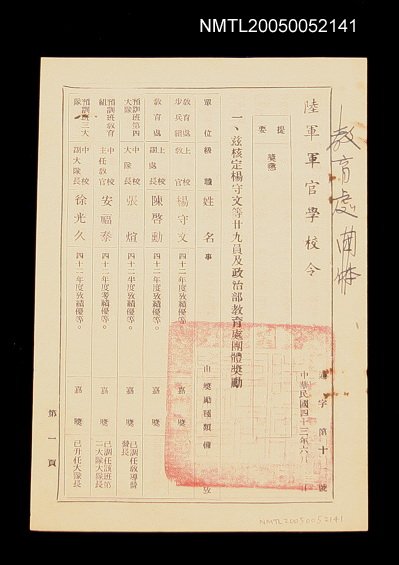 NMTL20050052141
教育處
陸軍軍官學校令
中華民國四十三年六月
字第十號
提要
獎懲
一、茲核定楊守文等廿九員及政治部教育處團體獎勵
單位級職姓名事由獎勵種類備考
教育處步兵組上校教官楊守文四十二年度教績優等。嘉獎
教育處上校處長陳啓勳四十二年度教績優等。嘉獎
預訓班第四大隊中校大隊長張煊四十二年度教績優等。嘉獎已調任教導營營長
預訓班教育組中校主任教官安福泰四十二年度考績優等。嘉獎已調任該班第二大隊大隊長
預訓班三大隊中校副大隊長徐光久四十二年度教績優等。嘉獎已升任大隊長
第一頁
NMTL20050052141